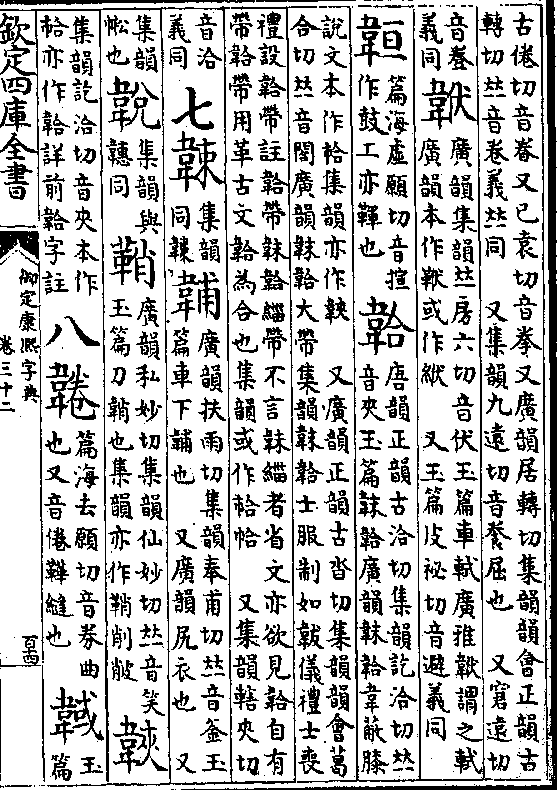 古倦切音眷又已袁切音拳又廣韻居轉切集韻韻會正韻古
轉切𠀤音卷義𠀤同　又集韻九遠切音菤屈也　又窘遠切
音菤
義同
廣韻集韻𠀤房六切音伏玉篇車軾廣雅謂之軾
廣韻本作或作　又玉篇皮袐切音避義同
篇海虛願切音揎
作鼓工亦鞾也
韐
唐韻正韻古洽切集韻訖洽切𠀤
音夾玉篇韎韐廣韻韎韐韋蔽膝
說文本作帢集韻亦作　又廣韻正韻古沓切集韻韻會葛
合切𠀤音閤廣韻韎韐大帶集韻韎韐士服制如韍儀禮士喪
禮設韐帶註韐帶韎韐緇帶不言韎緇者省文亦欲見韐自有
帶韐帶用革古文韐為合也集韻或作帢　又集韻轄夾切
音洽
義同
七
集韻
同
廣韻扶雨切集韻奉甫切𠀤音釜玉
篇車下也　又廣韻尻衣也　又
集韻
也
集韻與
同
廣韻私妙切集韻仙妙切𠀤音笑
玉篇刀鞘也集韻亦作鞘削
集韻訖洽切音夾本作
帢亦作韐詳前韐字註
八
篇海去願切音券曲
也又音倦鞾縫也
玉
篇
欽定四庫全書
御定康熙字典
卷三十二
百四